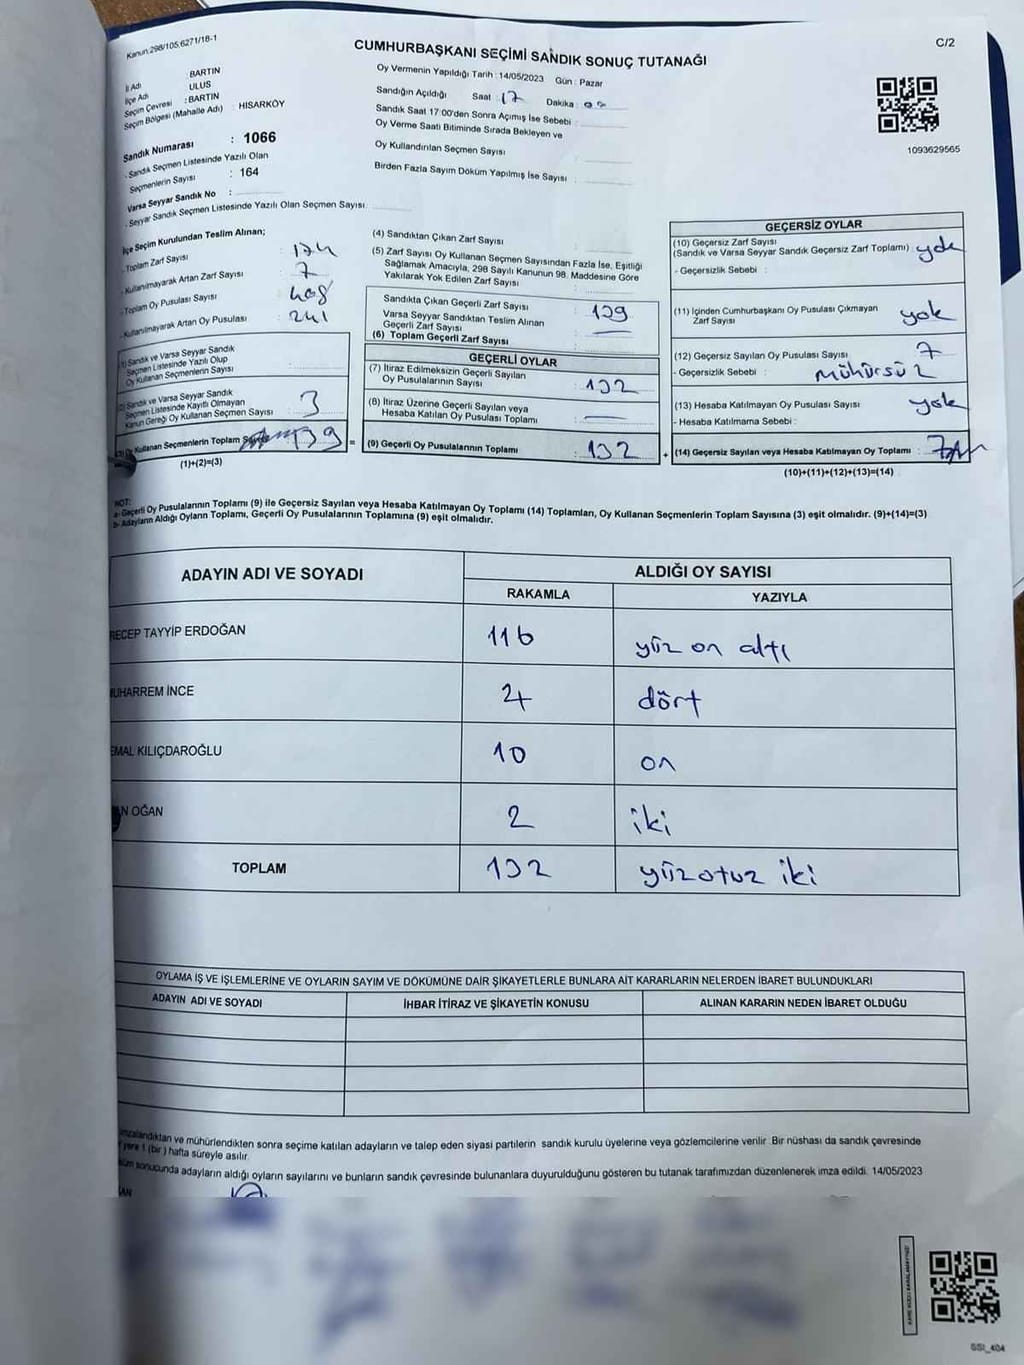 Kanun:298/105,6271/18-1
C/2
CUMHURBAŞKANI SEÇİMİ SANDIK SONUÇ TUTANAĞI
İl Adı : BARTIN
İlçe Adı : ULUS
Seçim Çevresi : BARTIN
Seçim Bölgesi (Mahalle Adı) : HISARKÖY
Sandık Numarası : 1066
- Sandık Seçmen Listesinde Yazılı Olan
Seçmenlerin Sayısı : 164
Varsa Seyyar Sandık No :
- Seyyar Sandık Seçmen Listesinde Yazılı Olan Seçmen Sayısı:
Oy Vermenin Yapıldığı Tarih : 14/05/2023 Gün : Pazar
Sandığın Açıldığı Saat : 17 Dakika : 00
Sandık Saat 17:00'den Sonra Açımış İse Sebebi :
Oy Verme Saati Bitiminde Sırada Bekleyen ve
Oy Kullandırılan Seçmen Sayısı :
Birden Fazla Sayım Döküm Yapılmış İse Sayısı :
1093629565
İlçe Seçim Kurulundan Teslim Alınan;
- Toplam Zarf Sayısı : 174
- Kullanılmayarak Artan Zarf Sayısı : 7
- Toplam Oy Pusulası Sayısı : 408
- Kullanılmayarak Artan Oy Pusulası : 241
(1) Sandık ve Varsa Seyyar Sandık
Seçmen Listesinde Yazılı Olup
Oy Kullanan Seçmenlerin Sayısı :
(2) Sandık ve Varsa Seyyar Sandık
Seçmen Listesinde Kayıtlı Olmayan
Kanun Gereği Oy Kullanan Seçmen Sayısı : 3
(3) Oy Kullanan Seçmenlerin Toplam Sayısı 139 =
(1)+(2)=(3)
(4) Sandıktan Çıkan Zarf Sayısı :
(5) Zarf Sayısı Oy Kullanan Seçmen Sayısından Fazla İse, Eşitliği
Sağlamak Amacıyla, 298 Sayılı Kanunun 98. Maddesine Göre
Yakılarak Yok Edilen Zarf Sayısı :
Sandıkta Çıkan Geçerli Zarf Sayısı : 139
Varsa Seyyar Sandıktan Teslim Alınan
Geçerli Zarf Sayısı :
(6) Toplam Geçerli Zarf Sayısı :
GEÇERLİ OYLAR
(7) İtiraz Edilmeksizin Geçerli Sayılan
Oy Pusulalarının Sayısı : 132
(8) İtiraz Üzerine Geçerli Sayılan veya
Hesaba Katılan Oy Pusulası Toplamı :
(9) Geçerli Oy Pusulalarının Toplamı : 132 +
GEÇERSİZ OYLAR
(10) Geçersiz Zarf Sayısı
(Sandık ve Varsa Seyyar Sandık Geçersiz Zarf Toplamı) : yok
- Geçersizlik Sebebi :
(11) İçinden Cumhurbaşkanı Oy Pusulası Çıkmayan
Zarf Sayısı : yok
(12) Geçersiz Sayılan Oy Pusulası Sayısı : 7
- Geçersizlik Sebebi : mühürsüz
(13) Hesaba Katılmayan Oy Pusulası Sayısı : yok
- Hesaba Katılmama Sebebi :
(14) Geçersiz Sayılan veya Hesaba Katılmayan Oy Toplamı : 7
(10)+(11)+(12)+(13)=(14)
NOT:
a- Geçerli Oy Pusulalarının Toplamı (9) ile Geçersiz Sayılan veya Hesaba Katılmayan Oy Toplamı (14) Toplamları, Oy Kullanan Seçmenlerin Toplam Sayısına (3) eşit olmalıdır. (9)+(14)=(3)
b- Adayların Aldığı Oyların Toplamı, Geçerli Oy Pusulalarının Toplamına (9) eşit olmalıdır.
ADAYIN ADI VE SOYADI ALDIĞI OY SAYISI
RAKAMLA YAZIYLA
RECEP TAYYİP ERDOĞAN 116 yüz on altı
MUHARREM İNCE 4 dört
EMAL KILIÇDAROĞLU 10 on
AN OĞAN 2 iki
TOPLAM 132 yüzotuz iki
OYLAMA İŞ VE İŞLEMLERİNE VE OYLARIN SAYIM VE DÖKÜMÜNE DAİR ŞİKAYETLERLE BUNLARA AİT KARARLARIN NELERDEN İBARET BULUNDUKLARI
ADAYIN ADI VE SOYADI İHBAR İTİRAZ VE ŞİKAYETİN KONUSU ALINAN KARARIN NEDEN İBARET OLDUĞU
imzalandıktan ve mühürlendikten sonra seçime katılan adayların ve talep eden siyasi partilerin sandık kurulu üyelerine veya gözlemcilerine verilir. Bir nüshası da sandık çevresinde
yere 1 (bir) hafta süreyle asılır.
sonucunda adayların aldığı oyların sayılarını ve bunların sandık çevresinde bulunanlara duyurulduğunu gösteren bu tutanak tarafımızdan düzenlenerek imza edildi. 14/05/2023
SSI_404